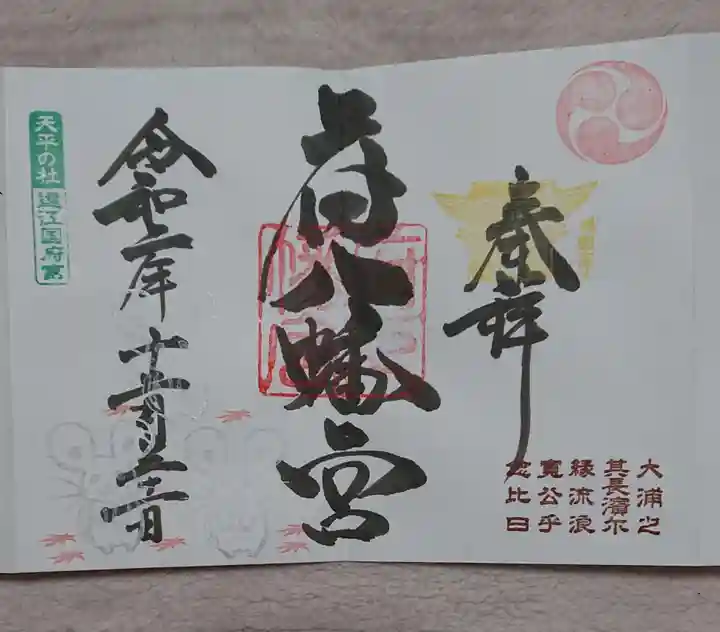 奉拝
大浦之
其長濱尓
縁流浪
寛公乎
念比日
府八幡宮
令和二年十一月
天平の社
遠江国府宮